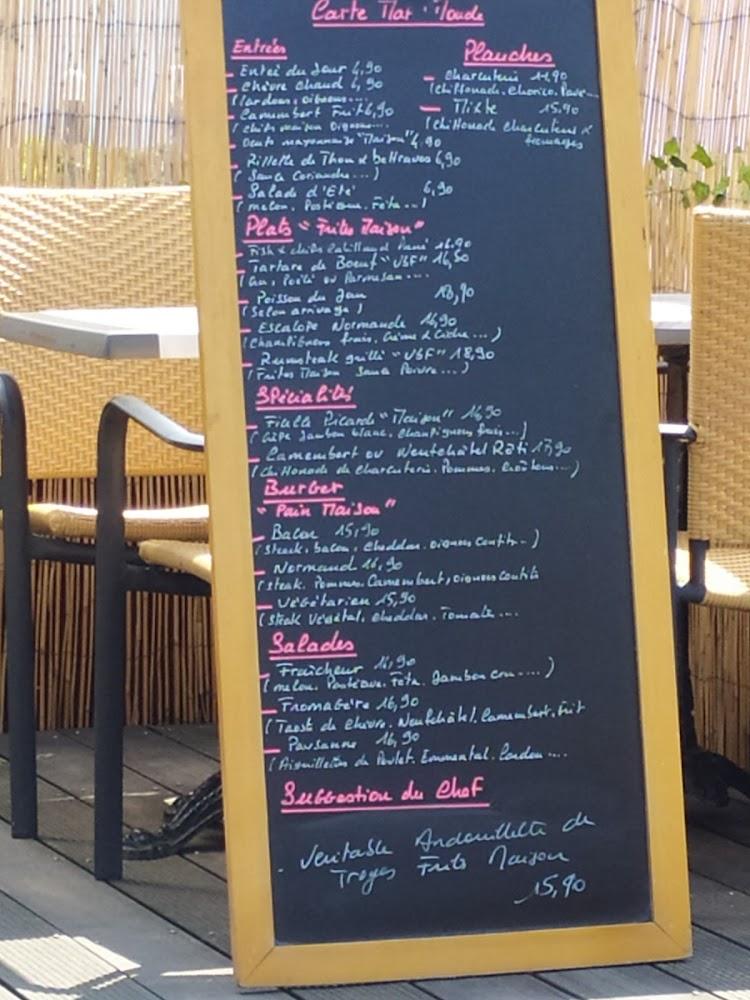 Carte
Entrées
Entrée du Jour 6,90
Chèvre Chaud 6,90
(lardons, oignons....
Camembert Frit 6,90
(chips maison Oignons....
Oeufs mayonnaise "Maison" 4.90
Rillette de Thon & betteraves 6,90
(Sauce Coriandre...)
Salade d'Eté 6,90
(melon, Pastèque, Feta...)
Planches
Charcuterie 14,90
(chiffonade, chorizo,
Mixte 15,90
(chiffonade charcuterie &
fromages
Plats "Frites Maison"
Fish & chips Cabillaud Pané 16.90
Tartare de Boeuf "VBF" 16,50
(cru, Poêlé ou Parmesan....
Poisson du Jour 18,90
(Selon arrivage)
Escalope Normande 16,90
(Champignons frais, Crème & Cidre...)
Rumsteak grillé "VBF" 18,90
(Frites Maison Sauce Poivre...)
Spécialités
Ficelle Picarde "Maison" 16,90
(Crêpe Jambon blanc, champignons frais...)
Camembert ou Neufchâtel Rôti 17,90
(Chiffonade de charcuterie, Pommes, Croûtons....)
Burger
"Pain Maison"
Bacon 15,90
(Steak, bacon, Cheddar, oignons confits..)
Normand 16,90
(Steak, Pommes, Camembert, oignons confits
Végétarien 15,90
(Steak Végétal, cheddar, Tomate....
Salades
Fraîcheur 16,90
(melon, Pastèque, Feta, Jambon cru....)
Fromagère 16,90
(Toast de chèvre, Neufchâtel, Camembert, Frit
Paysanne 16,90
(Aiguillettes de Poulet, Emmental, Lardon....
Suggestion du Chef
- Veritable Andouillette de
Troyes Frites Maison
15,90